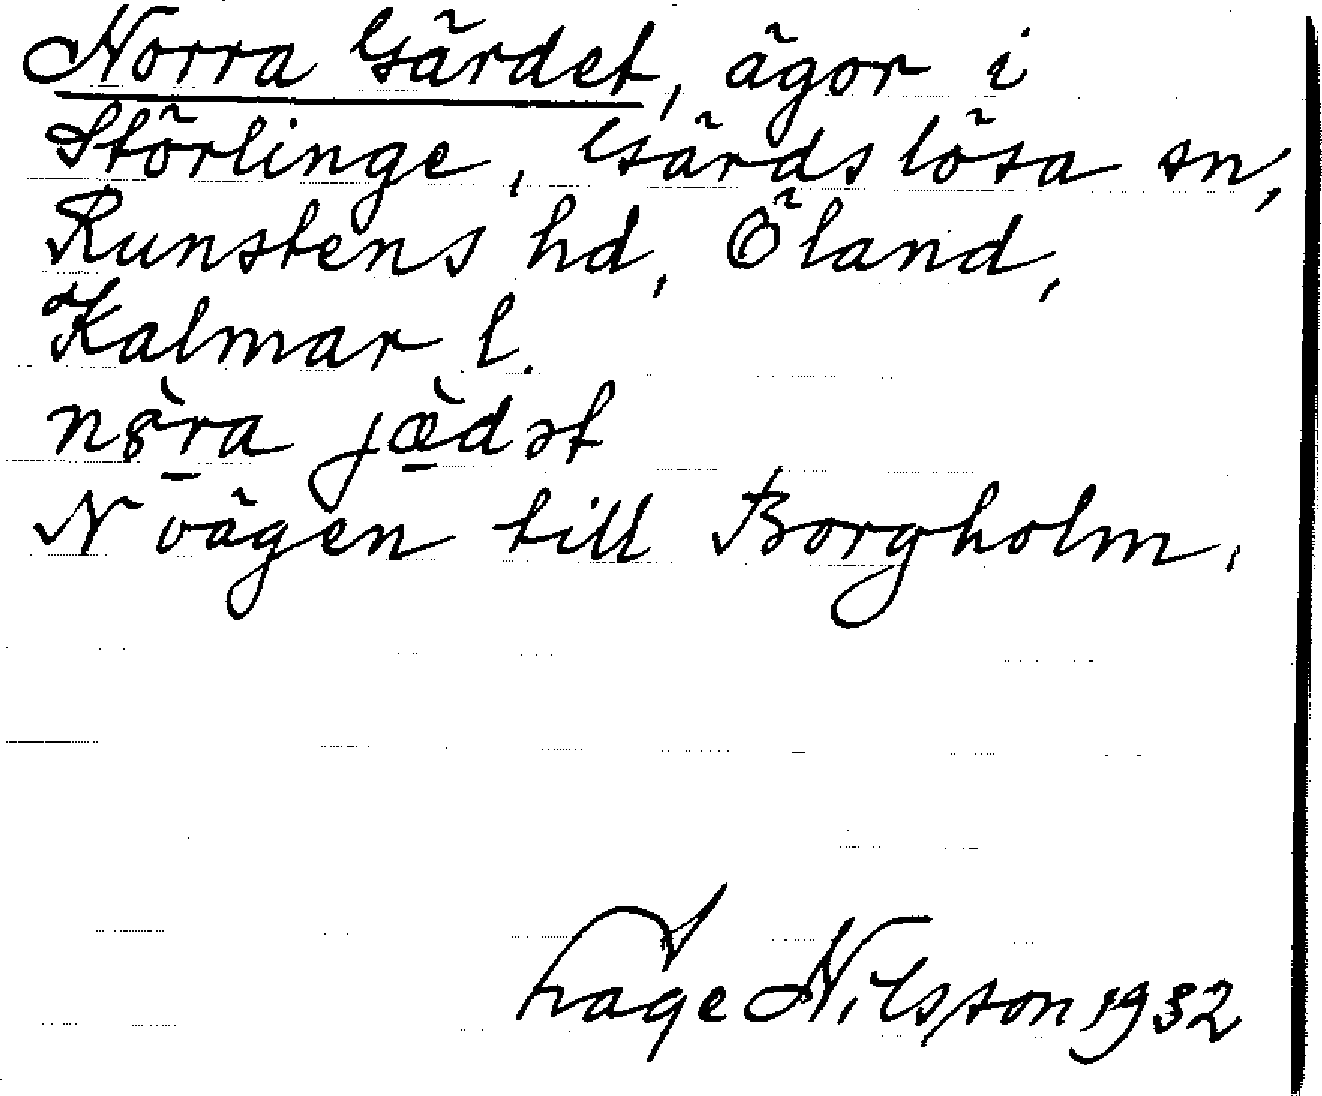 Norra Gärdet, ägor i
Störlinge, Gärdslösa sn,
Runstens hd, Öland,
Kalmar l.
nɞ̀r̲a jæ̲̀dət
N vägen till Borgholm.
Frage Nilsson 1932